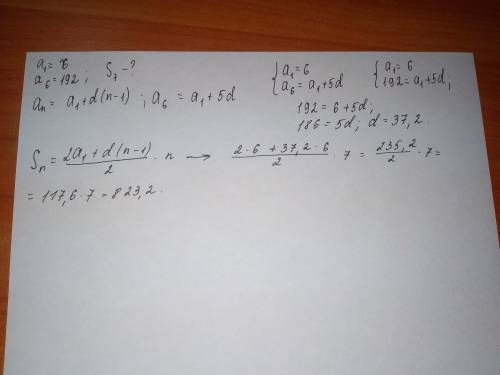 a₁ = 6
a₆ = 192 ; S₇ - ?
aₙ = a₁ + d(n-1) ; a₆ = a₁ + 5d
{ a₁ = 6
a₆ = a₁ + 5d
{ a₁ = 6
192 = a₁ + 5d;
192 = 6 + 5d;
186 = 5d; d = 37,2.
Sₙ = (2a₁ + d(n-1))/2 · n → (2·6 + 37,2·6)/2 · 7 = 235,2/2 · 7 =
= 117,6 · 7 = 823,2.